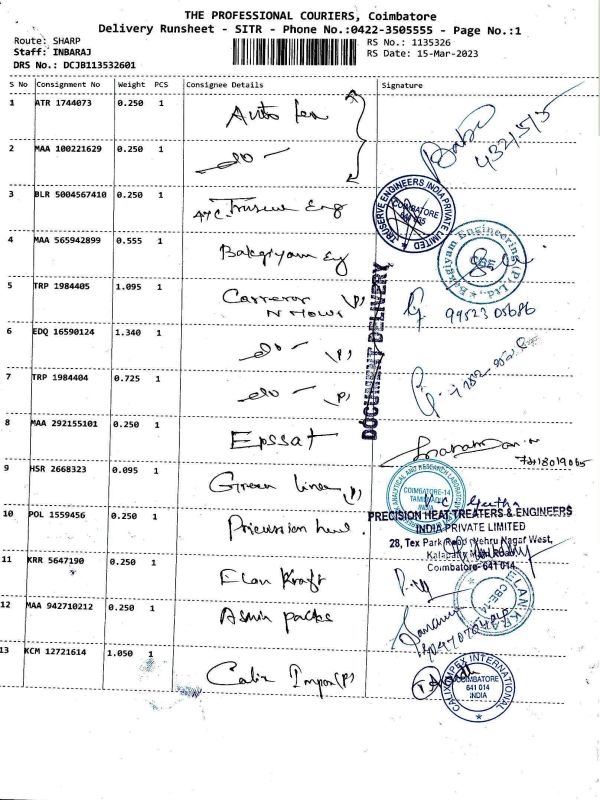 THE PROFESSIONAL COURIERS, Coimbatore
Delivery Runsheet - SITR - Phone No.:0422-3505555 - Page No.:1
Route: SHARP RS No.: 1135326
Staff: INBARAJ RS Date: 15-Mar-2023
DRS No.: DCJB113532601
S No Consignment No Weight PCS Consignee Details Signature
1 ATR 1744073 0.250 1 Auto
2 MAA 100221629 0.250 1 do -
3 BLR 5004567410 0.250 1 Eng
4 MAA 565942899 0.555 1 Bakgiyam Eng
5 TRP 1984405 1.095 1 (P) 99523 05686
6 EDQ 16590124 1.340 1 do - (P)
7 TRP 1984404 0.725 1 do - (P)
8 MAA 292155101 0.250 1 Epssat
9 HSR 2668323 0.095 1 Green (P)
10 POL 1559456 0.250 1
11 KRR 5647190 0.250 1 Elan Kraft
12 MAA 942710212 0.250 1 packs
13 KCM 12721614 1.050 1 Calix Impex (P)
TRUSERVE ENGINEERS INDIA PRIVATE LIMITED
COIMBATORE
Bakgiyam Engineering (P) Ltd.,
CBE
DOCUMENT DELIVERY
ANALYTICAL AND RESEARCH
COIMBATORE-14
INDIA
PRECISION HEAT TREATERS & ENGINEERS
INDIA PRIVATE LIMITED
28, Tex Park Road, Nehru Nagar West,
Kalapatty Main Road,
Coimbatore- 641 014.
ELAN
CBE-14
CALIX IMPEX INTERNATIONAL
COIMBATORE
641 014
INDIA